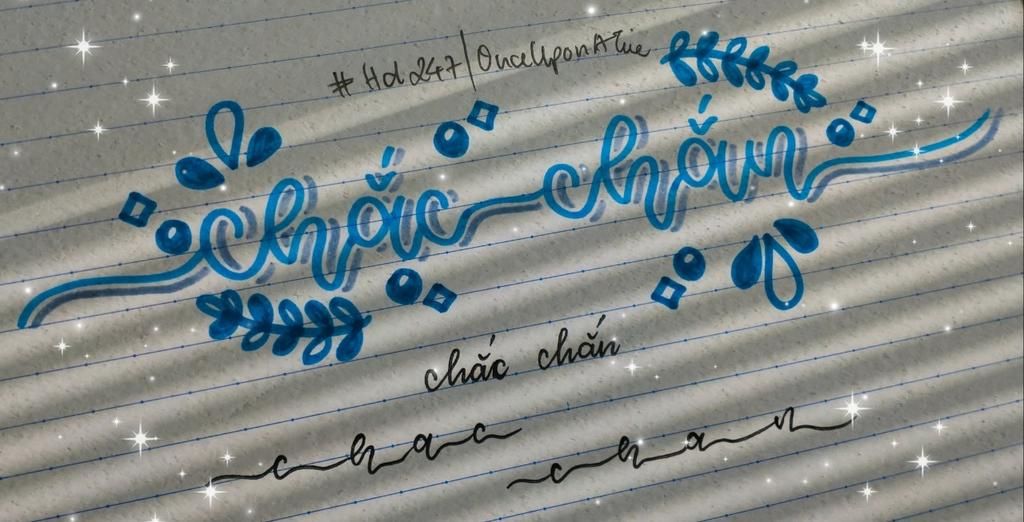 #Hd247/OnceUponATime
chắc chắn
chắc chắn
chac chan